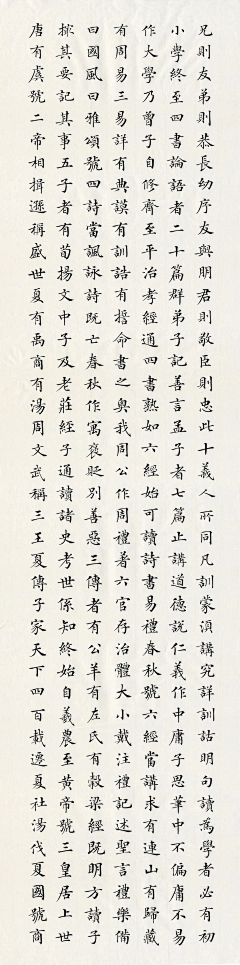 兄則友弟則恭長幼序友與朋君則敬臣則忠此十義人所同凡訓蒙須講究詳訓詁明句讀為學者必有初
小學終至四書論語者二十篇群弟子記善言孟子者七篇止講道德說仁義作中庸子思筆中不偏庸不易
作大學乃曾子自修齊至平治孝經通四書熟如六經始可讀詩書易禮春秋號六經當講求有連山有歸藏
有周易三易詳有典謨有訓誥有誓命書之奧我周公作周禮著六官存治體大小戴注禮記述聖言禮樂備
曰國風曰雅頌號四詩當諷詠詩既亡春秋作寓褒貶別善惡三傳者有公羊有左氏有穀梁經既明方讀子
撮其要記其事五子者有荀揚文中子及老莊經子通讀諸史考世係知終始自羲農至黃帝號三皇居上世
唐有虞號二帝相揖遜稱盛世夏有禹商有湯周文武稱三王夏傳子家天下四百載遷夏社湯伐夏國號商